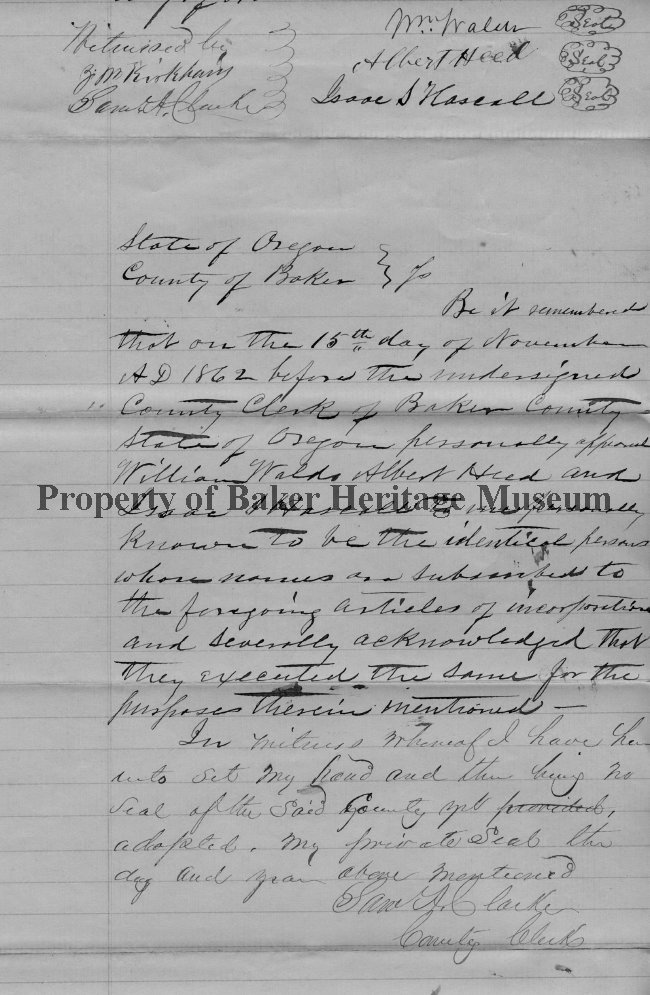 Witnessed by
J M Kirkham
Saml A. Clarke
Wm Waldo Seal
Albert Heed Seal
Isaac S Hascall Seal
State of Oregon
County of Baker } ss
Be it remembered
that on the 15th day of November
A D 1862 before the undersigned
County Clerk of Baker County
State of Oregon personally appeared
William Waldo Albert Heed and
Isaac S Hascall to me personally
Property of Baker Heritage Museum
known to be the identical persons
whose names are subscribed to
the foregoing articles of incorporation
and severally acknowledged that
they executed the same for the
purposes therein mentioned —
In witness whereof I have here
unto set my hand and there being no
seal of the said County yet provided,
adopted. My private Seal the
day and year above mentioned
Saml A. Clarke
County Clerk